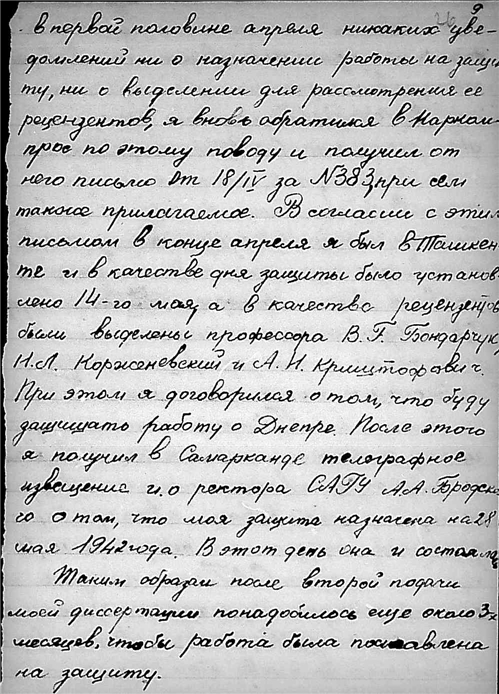 9
26
в первой половине апреля никаких уве-
домлений ни о назначении работы на защи-
ту, ни о выделении для рассмотрения ее
рецензентов, я вновь обратился в Нарком-
прос по этому поводу и получил от
него письмо от 18/IV за №383, при сем
также прилагаемое. В согласии с этим
письмом в конце апреля я был в Ташкен-
те и в качестве дня защиты было установ-
лено 14-го мая, а в качестве рецензентов
были выделены профессора В.Г. Бондарчук,
Н.Л. Корженевский и А.И. Криштофович.
При этом я договорился о том, что буду
защищать работу о Днепре. После этого
я получил в Самарканде телеграфное
извещение и.о ректора САГУ А.А. Бродско-
го о том, что моя защита назначена на 28
мая 1942 года. В этот день она и состоялась
Таким образом после второй подачи
моей диссертации понадобилось еще около 3-х
месяцев, чтобы работа была поставлена
на защиту.